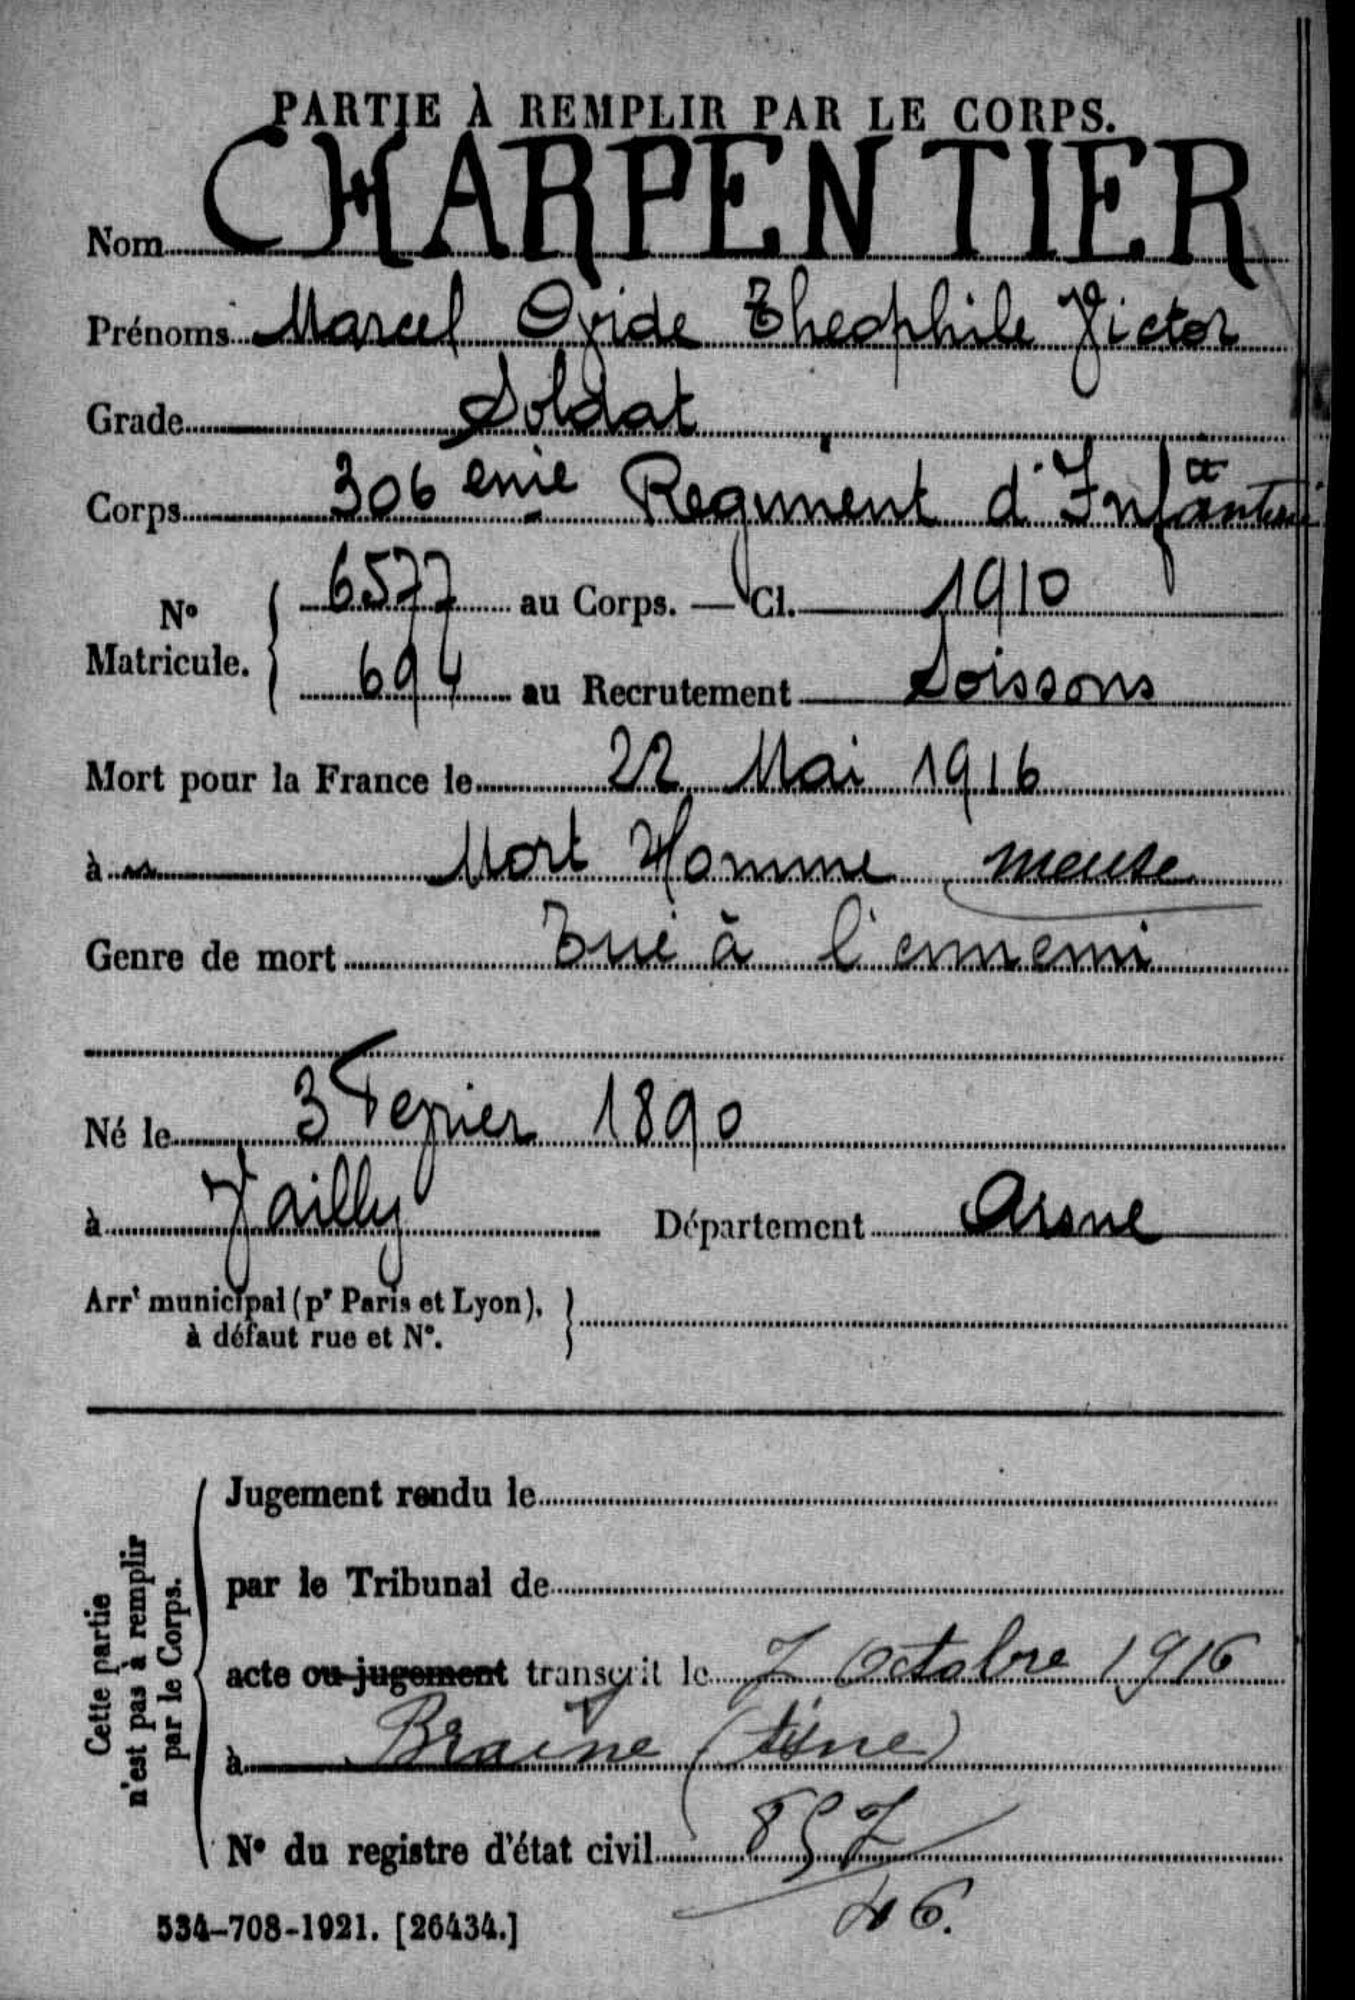 PARTIE À REMPLIR PAR LE CORPS.
Nom CHARPENTIER
Prénoms Marcel Ovide Theophile Victor
Grade Soldat
Corps 306 eme Regiment d'Infanterie
N° Matricule. 6577 au Corps. — Cl. 1910
694 au Recrutement Soissons
Mort pour la France le 22 Mai 1916
à Mort Homme Meuse
Genre de mort Tué à l'ennemi
Né le 3 Fevrier 1890
à Vailly Département Aisne
Arrt municipal (pr Paris et Lyon),
à défaut rue et N°.
Cette partie
n'est pas à remplir
par le Corps.
Jugement rendu le
par le Tribunal de
acte ou jugement transcrit le 7 Octobre 1916
à Braine (Aisne)
N° du registre d'état civil 857
46.
534-708-1921. [26434.]